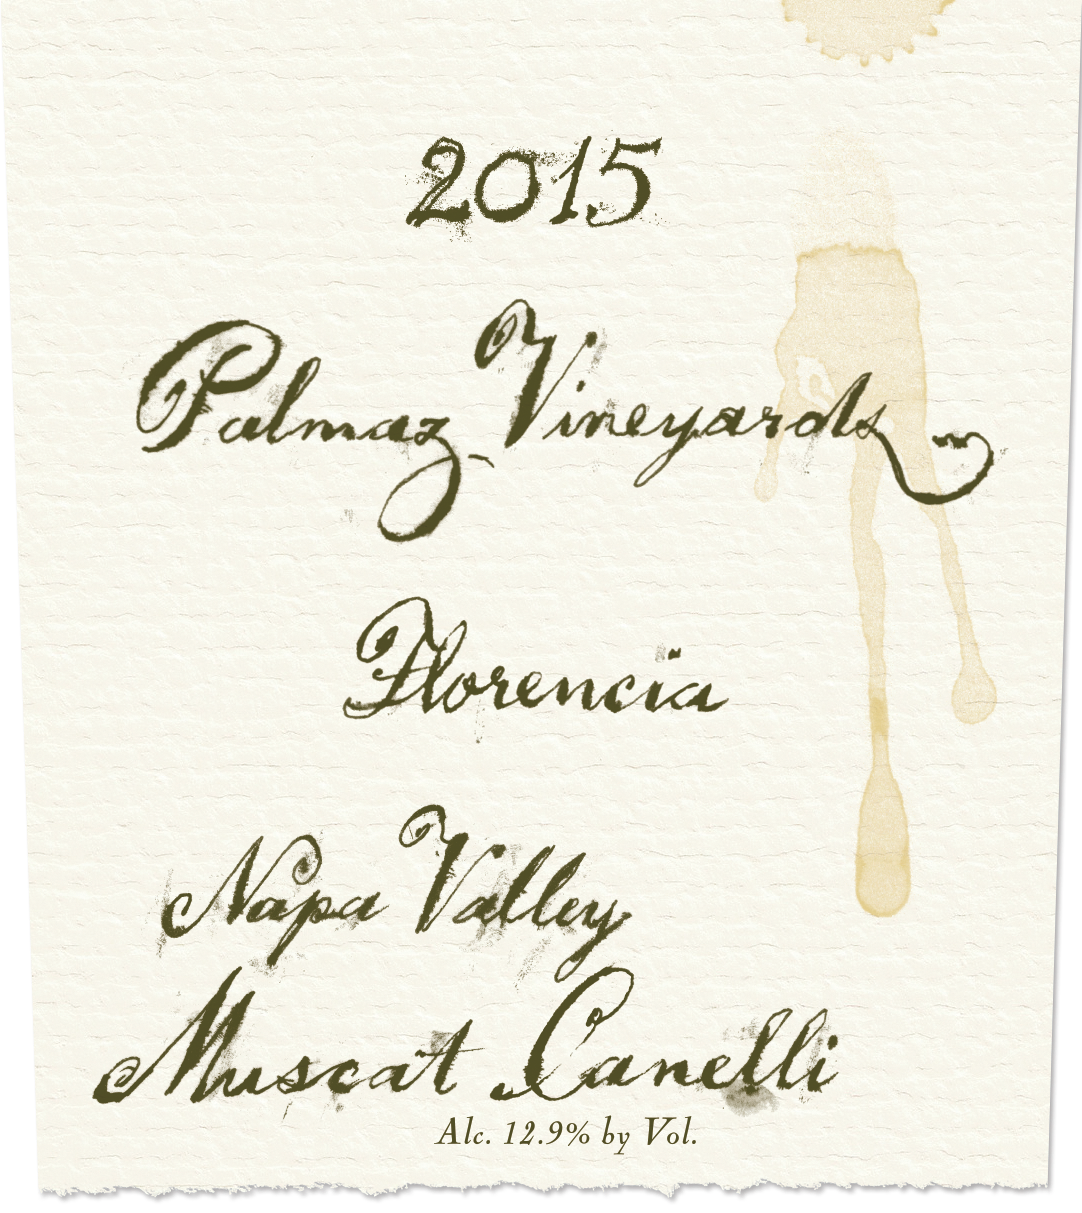 2015
Palmaz Vineyards
Florencia
Napa Valley
Muscat Canelli
Alc. 12.9% by Vol.